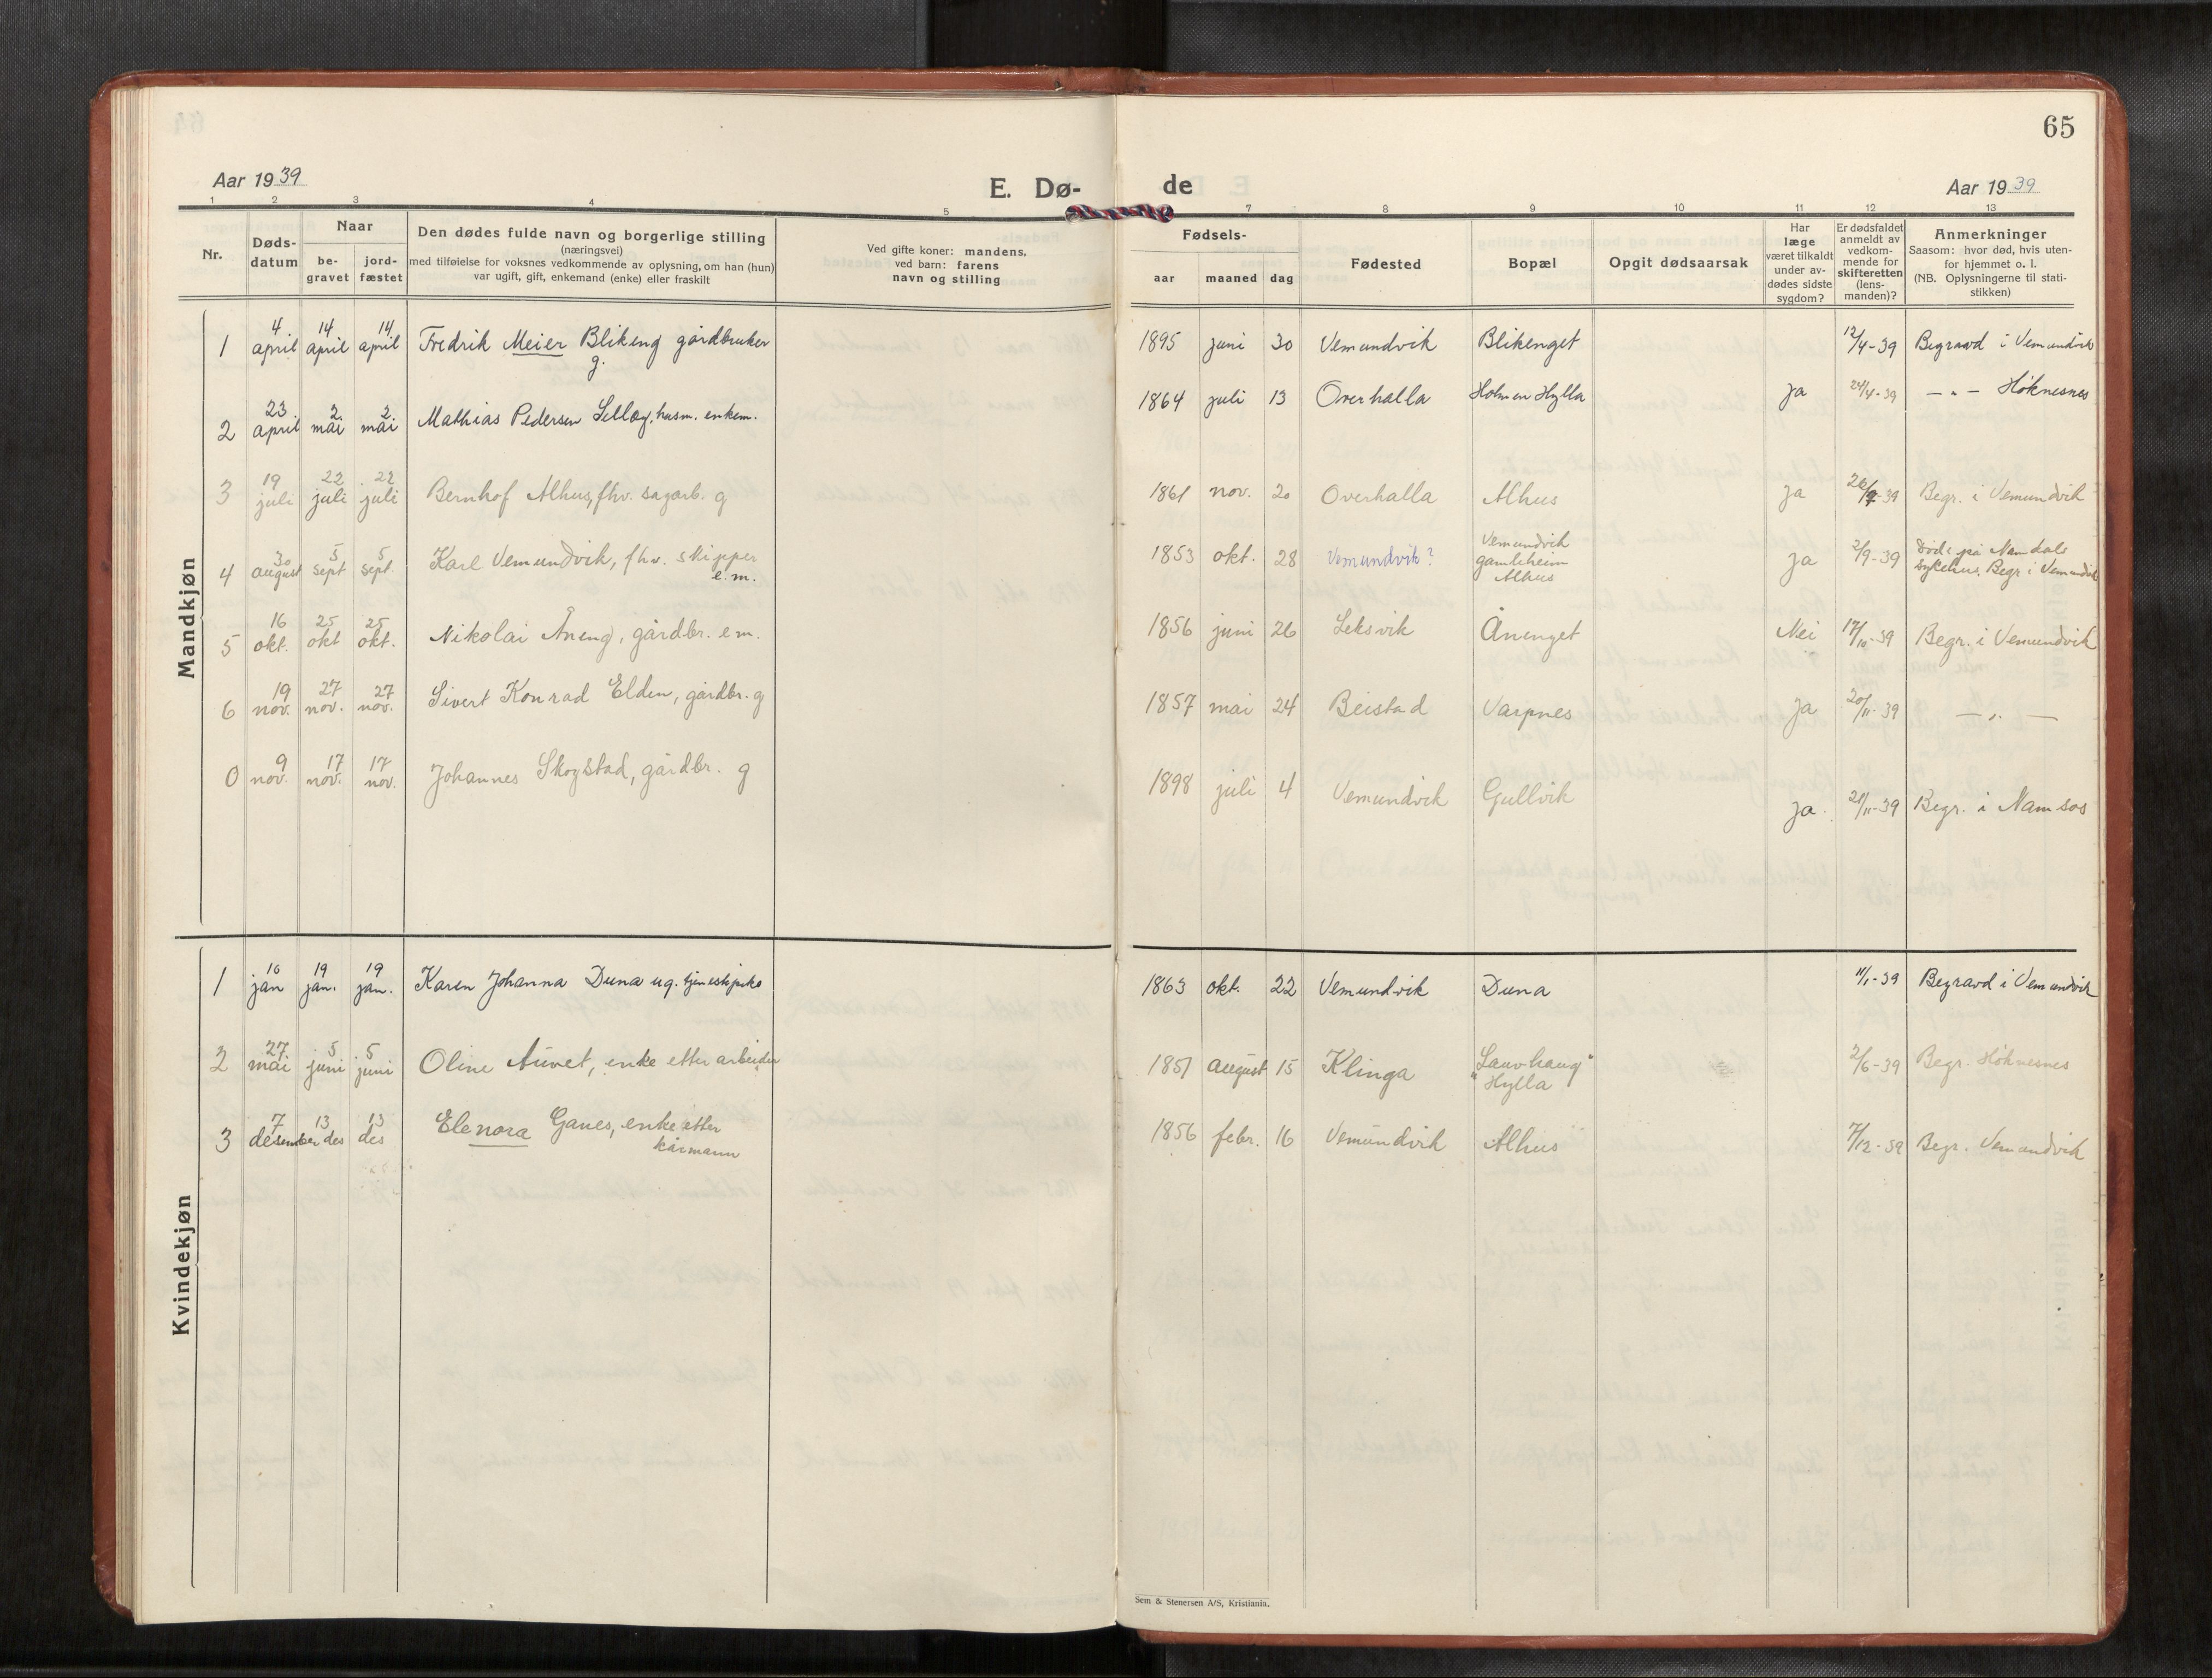 65
Aar 1939
E. Dø-
de
Aar 1939
1 2 3 4 5 7 8 9 10 11 12 13
Nr.
Døds-
datum
Naar
be-
gravet
jord-
fæstet
Den dødes fulde navn og borgerlige stilling
(næringsvei)
med tilføielse for voksnes vedkommende av oplysning, om han (hun)
var ugift, gift, enkemand (enke) eller fraskilt
Ved gifte koner: mandens,
ved barn: farens
navn og stilling
Fødsels-
aar maaned dag
Fødested
Bopæl
Opgit dødsaarsak
Har
læge
været tilkaldt
under av-
dødes sidste
sygdom?
Er dødsfaldet
anmeldt av
vedkom-
mende for
skifteretten
(lens-
manden)?
Anmerkninger
Saasom: hvor død, hvis uten-
for hjemmet o. l.
(NB. Oplysningerne til stati-
stikken)
Mandkjøn
1 4. april 14. april 14/ april Fredrik Meier Blikeng gårdbruker
g.
1895 juni 30 Vemundvik Blikenget 12/4-39 Begravd i Vemundvik
2 23. april 2. mai 2. mai Mathias Pedersen husm. enkem.
1864 juli 13 Overhalla Holmen Hylla ja 24/4-39 — " — Høknesnes
3 19 juli 22 juli 22 juli Bernhof Alhus, fhv. sagarb. g
1861 nov. 20 Overhalla Alhus ja Begr. i Vemundvik
4 30 august 5 sept 5 sept. Karl Vemundvik, fhv. skipper
e.m.
1853 okt. 28 Vemundvik? Vemundvik
gamleheim
Alhus
ja 2/9-39 Død på Namdal
sykehus. Begr. i Vemundvik
5 16 okt. 25 okt 25 okt. Nikolai Åneng, gårdbr. em.
1856 juni 26 Leksvik Ånenget Nei 17/10-39 Begr. i Vemundvik
6 19 nov. 27 nov. 27 nov. Sivert Konrad Elden, gårdbr. g
1857 mai 24 Beistad Varpnes ja 20/11-39 — " —
0 9 nov. 17 nov. 17 nov. Johannes Skogstad, gårdbr. g
1898 juli 4 Vemundvik Gullvik ja. 21/11-39 Begr. i Namsos
Kvindekjøn
1 10 jan 19 jan. 19 jan. Karen Johanna Duna ug. tjenestepike
1863 okt. 22 Vemundvik Duna 11/1-39 Begravd i Vemundvik
2 27. mai 5 juni 5 juni Oline Auvet, enke etter arbeider
1851 august 15 Klinga "Lauvhaug"
Hylla
2/6-39 Begr. Høknesnes
3 7 desember 13 des 13 des Elenora Ganes, enke etter
kårmann
1856 febr. 16 Vemundvik Alhus 7/12-39 Begr. Vemundvik
Sem & Stenersen A/S, Kristiania.